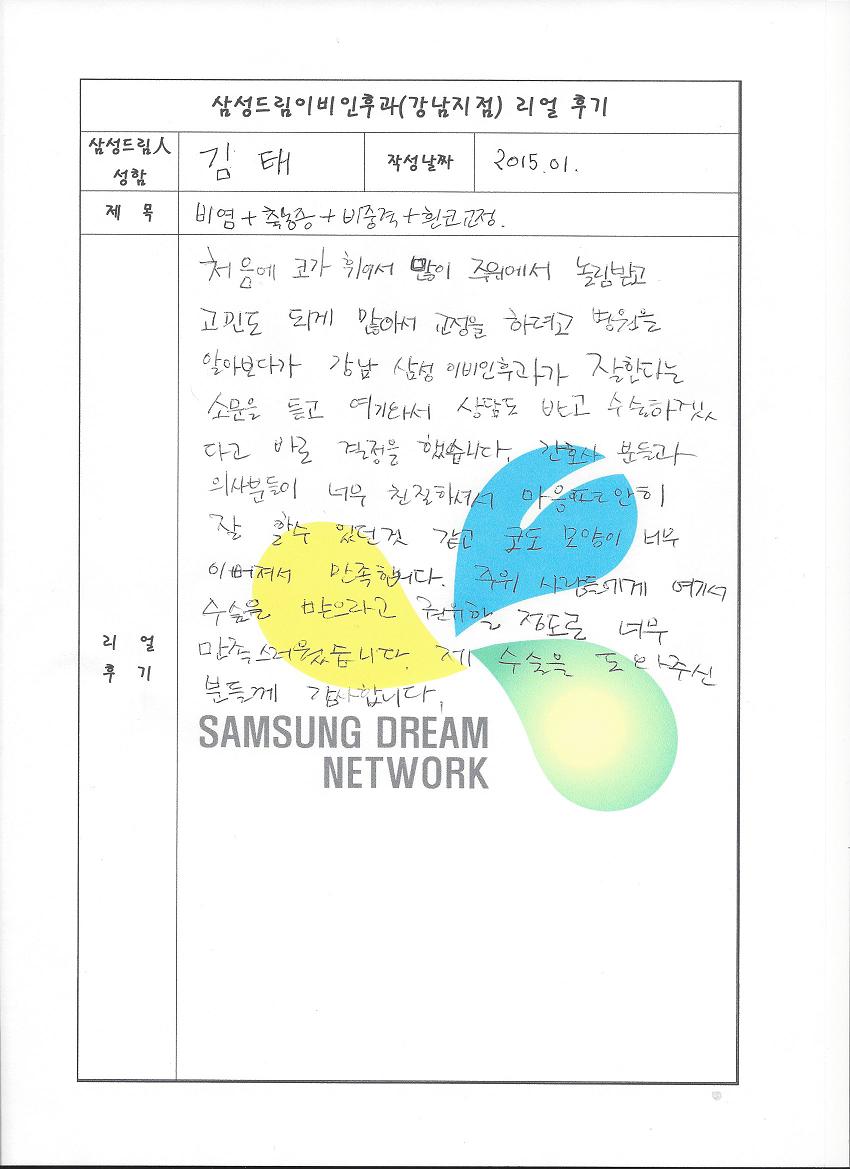 삼성드림이비인후과(강남지점) 리얼 후기
삼성드림人 성함
김 태
작성날짜
2015.01.
제 목
비염+축농증+비중격+휜코교정.
리 얼 후 기
처음에 코가 휘어서 많이 주위에서 놀림받고
고민도 되게 많아서 교정을 하려고 병원을
알아보다가 강남 삼성 이비인후과가 잘한다는
소문을 듣고 여기와서 상담도 받고 수술하겠
다고 바로 결정을 했습니다. 간호사 분들과
의사분들이 너무 친절하셔서 마음 안히
잘 할수 있던것 같고 코도 모양이 너무
이뻐져서 만족합니다. 주위 사람들에게 여기서
수술을 받으라고 권유할 정도로 너무
만족스러웠습니다. 제 수술을 도와주신
분들께 감사합니다.
SAMSUNG DREAM
NETWORK